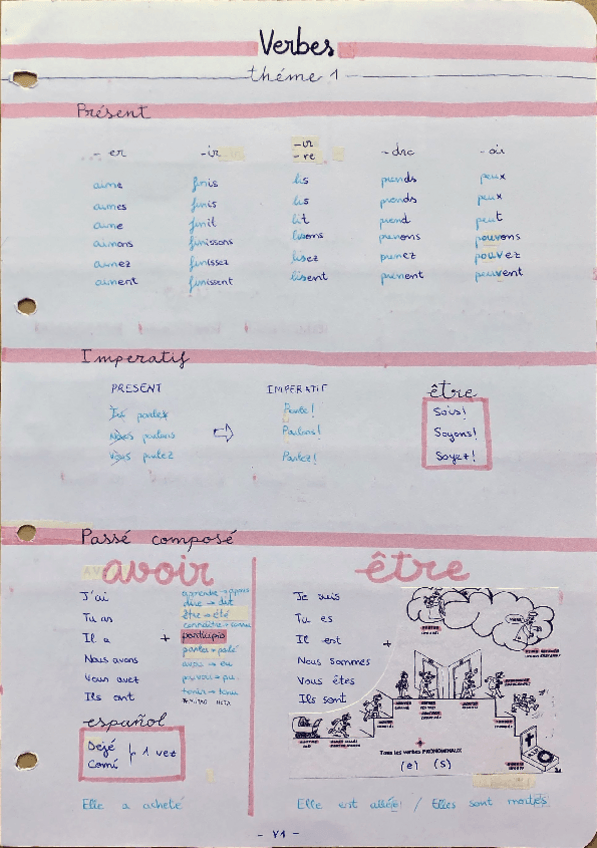 Verbes
théme 1
Présent
- er -ir -ir -dre - oir
- re
aime finis lis prends peux
aimes finis lis prends peux
aime finit lit prend peut
aimons finissons lisons prenons pouvons
aimez finissez lisez prenez pouvez
aiment finissent lisent prenent peuvent
Imperatif
PRESENT IMPERATIF être
Tú parles Parle! Sois!
Nous parlons Parlons! Soyons!
Vous parlez Parlez! Soyez!
Passé composé
avoir être
J'ai Je suis
dire → dit
Tu as être → été Tu es
Il a + participio Il est +
parler → parlé
Nous avons avoir → eu Nous sommes
Vous avez pouvoir → pu Vous êtes
Ils ont tenir → tenu Ils sont
español
Dejé
Comí
p 1 vez
Tous les verbes PRONOMINAUX
(e) (s)
Elle a acheté Elle est allée / Elles sont mortes
- V1 -